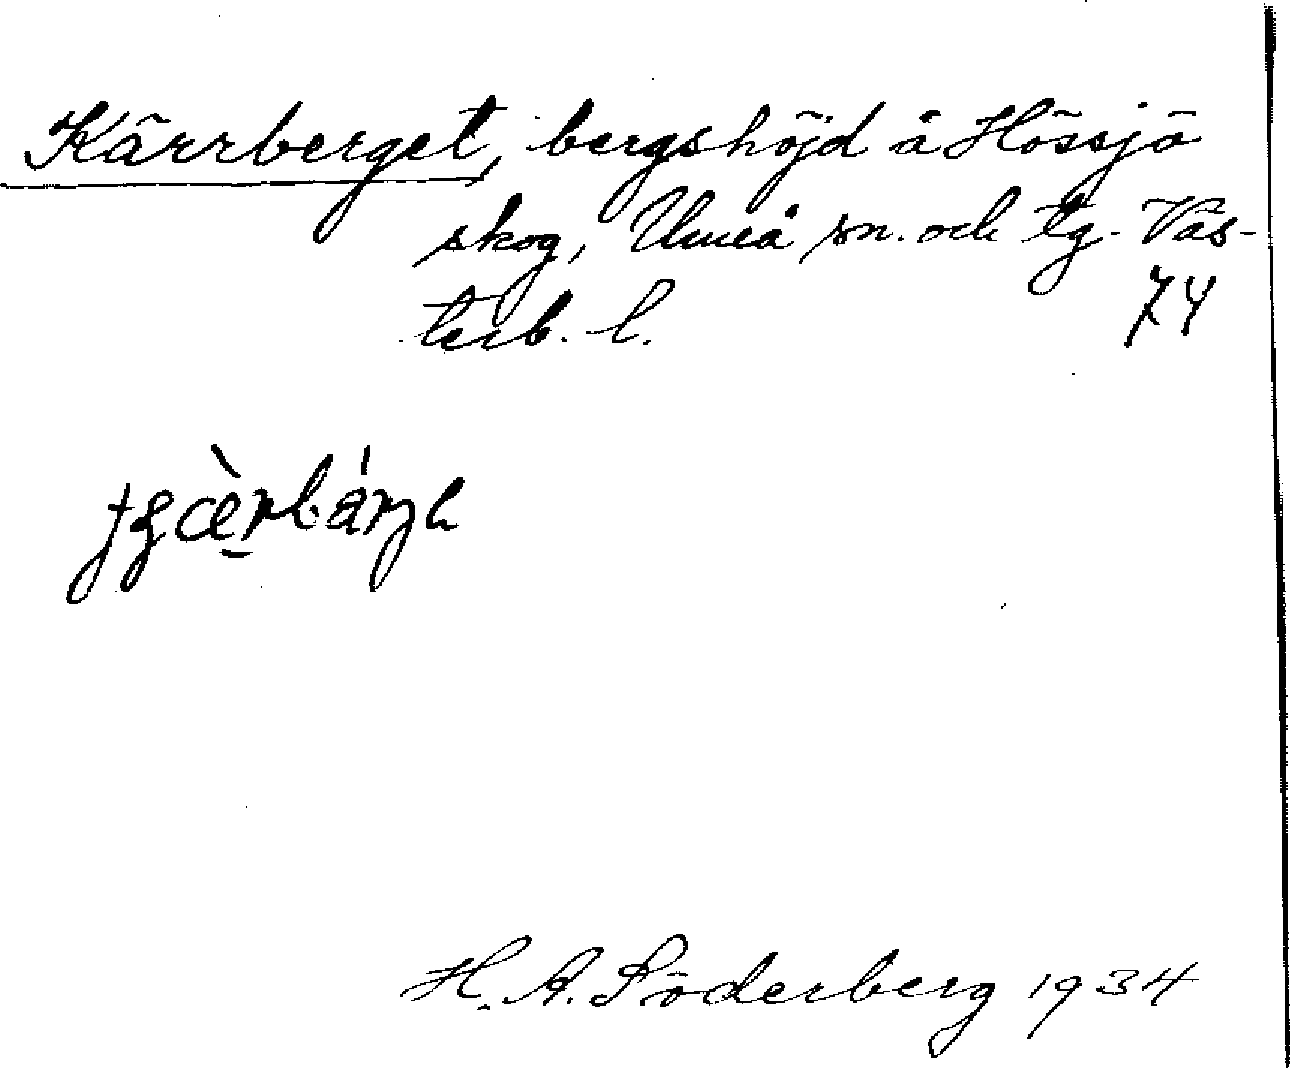 Kärrberget, bergshöjd å Hössjö
skog, Umeå sn. och tg. Väs-
terb. l.
74
H. A. Söderberg 1934